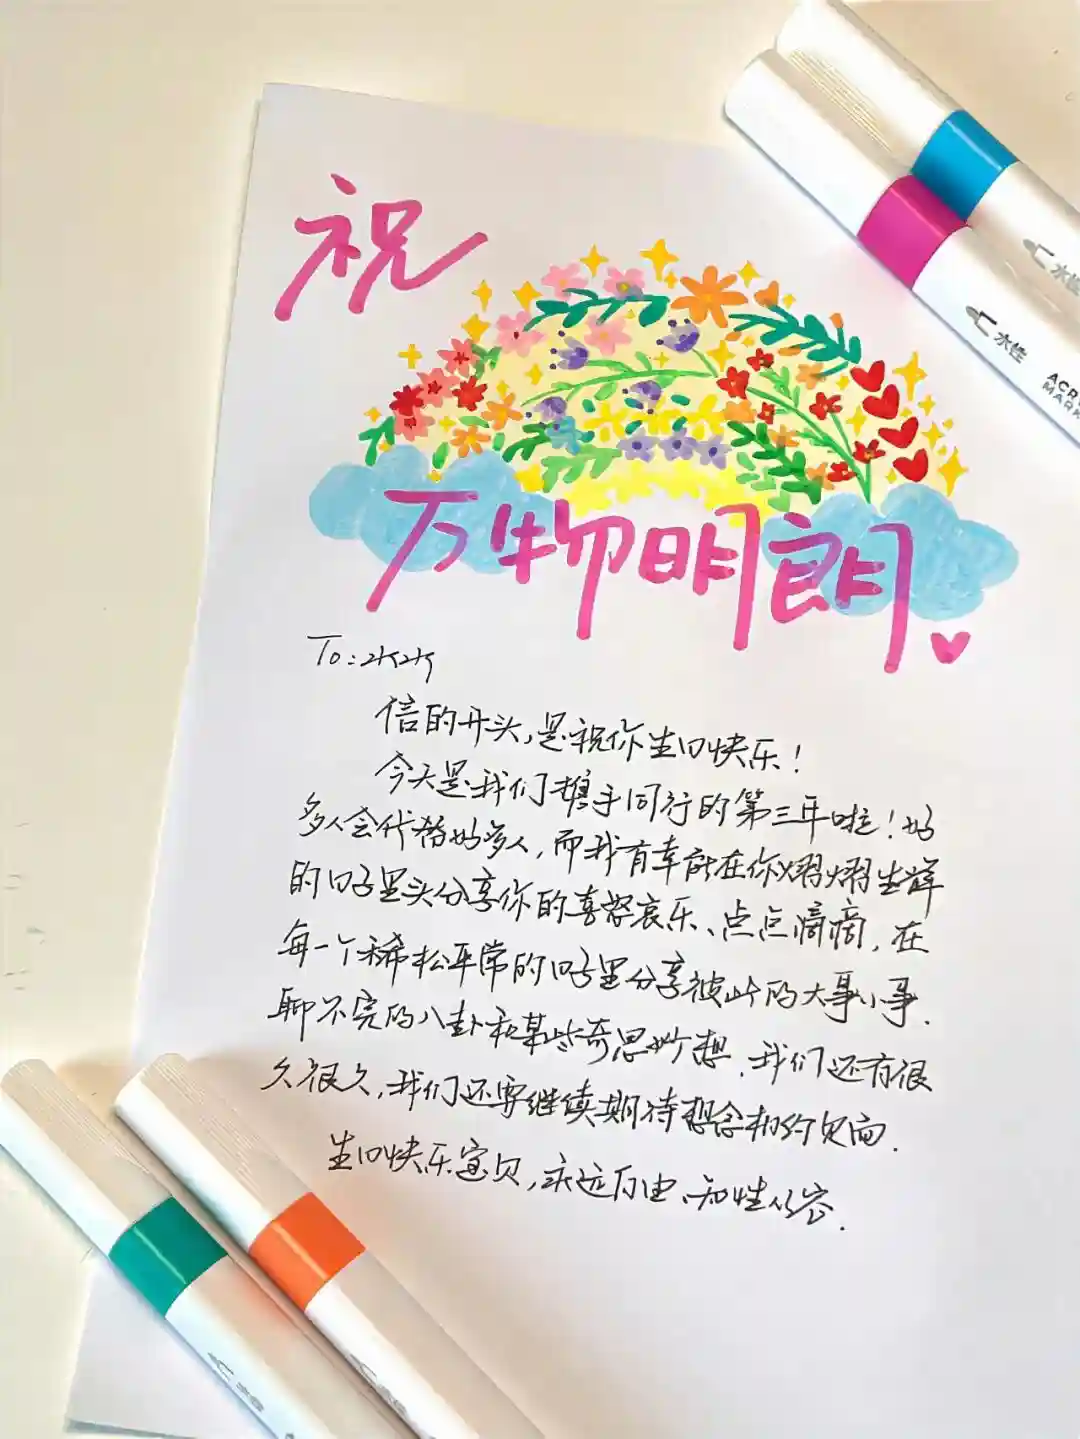 祝
万物明朗
To:水水
信的开头,是祝你生日快乐!
今天是我们携手同行的第三年啦!好
多人会代替好多人,而我有幸能在你熠熠生辉
的日子里头分享你的喜怒哀乐、点点滴滴,在
每一个稀松平常的日子里分享彼此的大事小事.
聊不完的八卦和某些奇思妙想.我们还有很
久很久,我们还要继续期待想念和约见面.
生日快乐宝贝,永远自由、知性从容.
水性
水性
ACR
MARK